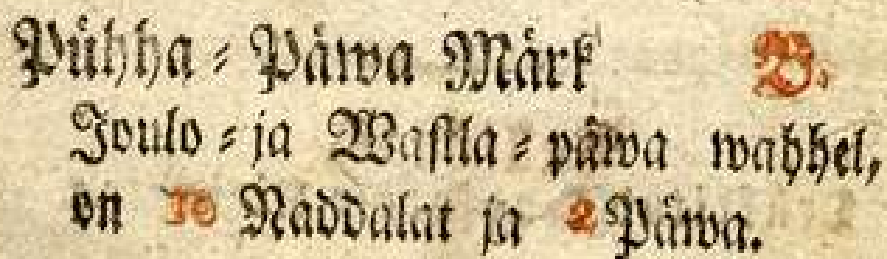 Pühha-Päwa Märk B.
Joulo-ja Wastla-päwa wahhel,
on 10 Näddalat ja 2 Päwa.